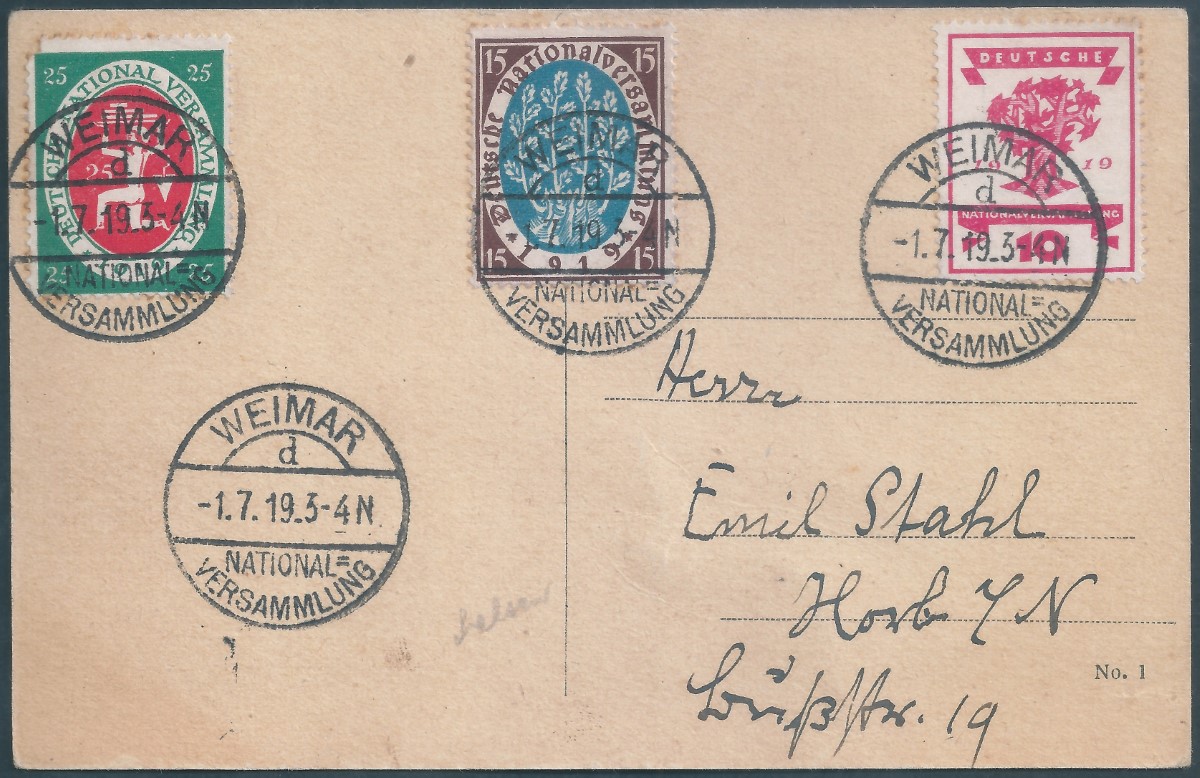 25 25
DEUTSCHE NATIONAL VERSAMMLUNG
25
25 25
15 15
Deutsche Nationalversammlung
* 1919 *
15 15
DEUTSCHE
1919
NATIONALVERSAMMLUNG
10
WEIMAR
d
-1.7.19.3-4N
NATIONAL=
VERSAMMLUNG
WEIMAR
d
-1.7.19.3-4N
NATIONAL=
VERSAMMLUNG
WEIMAR
d
-1.7.19.3-4N
NATIONAL=
VERSAMMLUNG
WEIMAR
d
-1.7.19.3-4N
NATIONAL=
VERSAMMLUNG
Herrn
Emil Stahl
Horb / N
No. 1
19